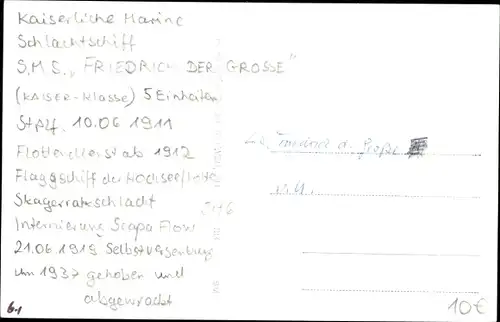 Kaiserliche Marine
Schlachtschiff
S.M.S. „FRIEDRICH DER GROSSE"
(KAISER-Klasse) 5 Einheiten
Stplf. 10.06 1911
Flottendienst ab 1912
Flaggschiff der Hochseeflotte
Skagerrakschlacht
Internierung Scapa Flow
21.06.1919 Selbstversenkung
um 1937 gehoben und
abgewrackt
d.
5116
61
10€